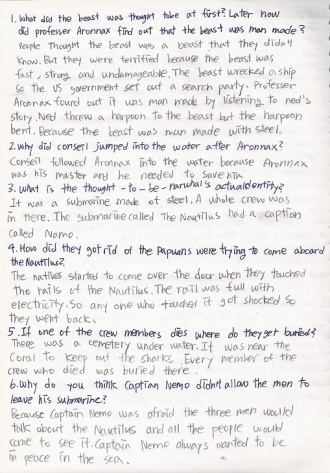 1. What did the beast was thought tobe at first? Later how
did professor Aronnax find out that the beast was man made?
People thought the beast was a beast that they didn't
know. But they were terrified because the beast was
fast, strong and undamageable. The beast wrecked a ship
so the US government set out a search party. Professer
Aronnax found out it was man made by listening to ned's
story. Ned threw a harpoon to the beast but the harpoon
bent. Because the beast was man made with steel.
2. why did conseil jumped into the water after Aronnax?
Conseil followed Aronnax into the water because Aronnax
was his master and he needed to save him
3. what is the thought-to-be-narwhal's actual identity?
It was a submarine made of steel. A whole crew was
in there. The submarine called The Nautilus had a caption
called Nemo.
4. How did they get rid of the Papuans were trying to come aboard
the Nautilus?
The natives started to come over the door when they touched
the rails of the Nautilus. The rail was full with
electricity. So any one who touched it got shocked. So
they went back.
5. If one of the crew members dies where do they get buried?
There was a cemetery under water. It was near the
Coral to keep out the sharks. Every member of the
crew who died was buried there.
6. Why do you think Captian Nemo didn't allow the men to
leave his submarine?
Because Captain Nemo was afraid the three men would
talk about the Nautilus and all the people would
come to see it. Captain Nemo always wanted to be
in peace in the sea.